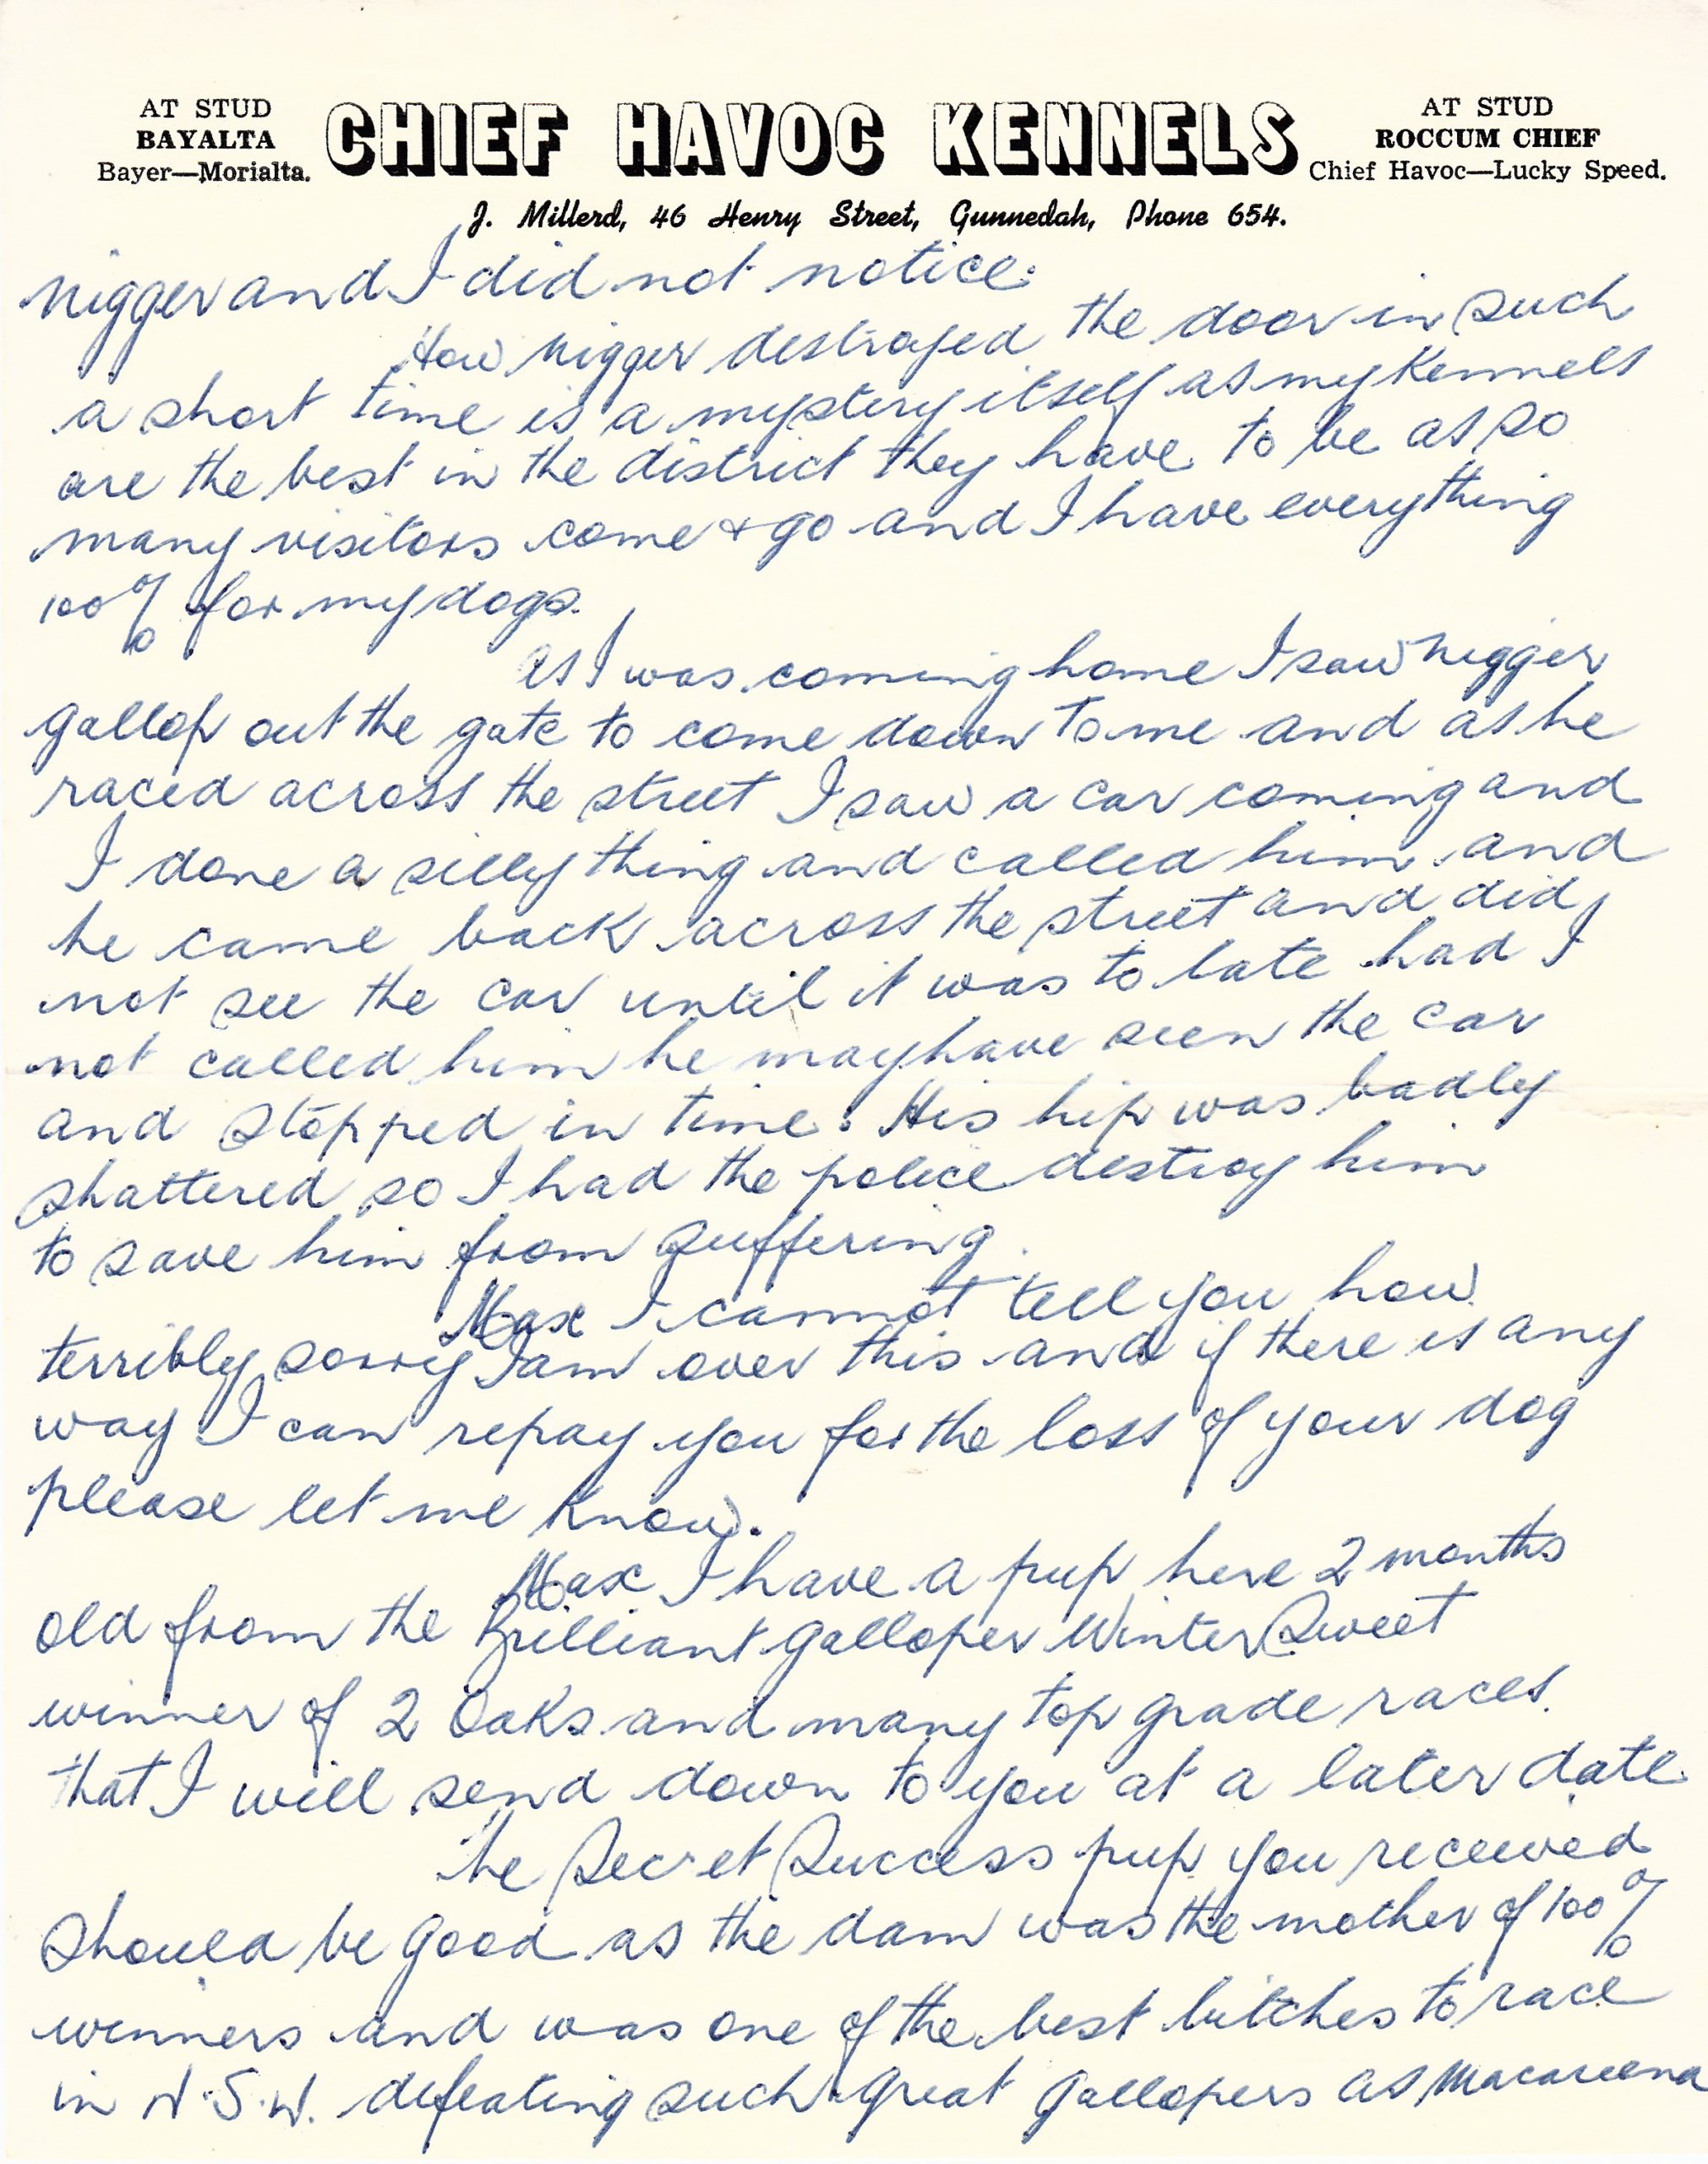 AT STUD
BAYALTA
Bayer—Morialta.
CHIEF HAVOC KENNELS
AT STUD
ROCCUM CHIEF
Chief Havoc—Lucky Speed.
J. Millerd, 46 Henry Street, Gunnedah, Phone 654.
Nigger and I did not notice.
How Nigger destroyed the door in such
a short time is a mystery itself as my Kennels
are the best in the district they have to be as so
many visitors come & go and I have everything
100% for my dogs.
As I was coming home I saw Nigger
gallop out the gate to come down to me and as he
raced across the street I saw a car coming and
I done a silly thing and called him and
he came back across the street and did
not see the car until it was to late had I
not called him he may have seen the car
and stopped in time. His hip was badly
shattered so I had the police destroy him
to save him from suffering.
Max I cannot tell you how
terribly sorry I am over this and if there is any
way I can repay you for the loss of your dog
please let me know.
Max I have a pup here 2 months
old from the Brilliant galloper Winter Sweet
winner of 2 Oaks and many top grade races.
that I will send down to you at a later date.
The Secret Success pup you received
should be good as the dam was the mother of 100%
winners and was one of the best bitches to race
in N.S.W. defeating such great gallopers as Macareena